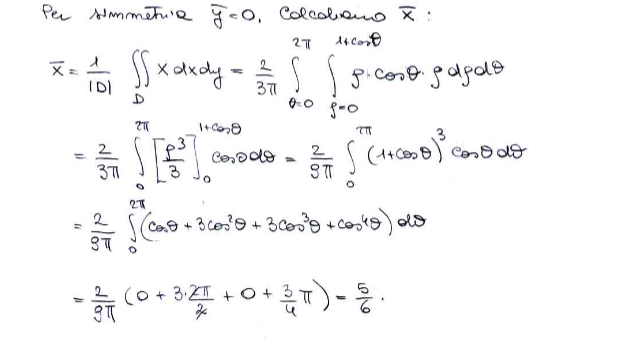 Per simmetria ȳ=0. Calcoliamo x̄ :
x̄ = 1/|D| ∬_D x dx dy = 2/3π ∫_{θ=0}^{2π} ∫_{ρ=0}^{1+cosθ} ρ·cosθ·ρ dρ dθ
= 2/3π ∫_0^{2π} [ρ³/3]_0^{1+cosθ} cosθ dθ = 2/9π ∫_0^{2π} (1+cosθ)³ cosθ dθ
= 2/9π ∫_0^{2π} (cosθ + 3cos²θ + 3cos³θ + cos⁴θ) dθ
= 2/9π (0 + 3·2π/2 + 0 + 3/4 π) = 5/6.